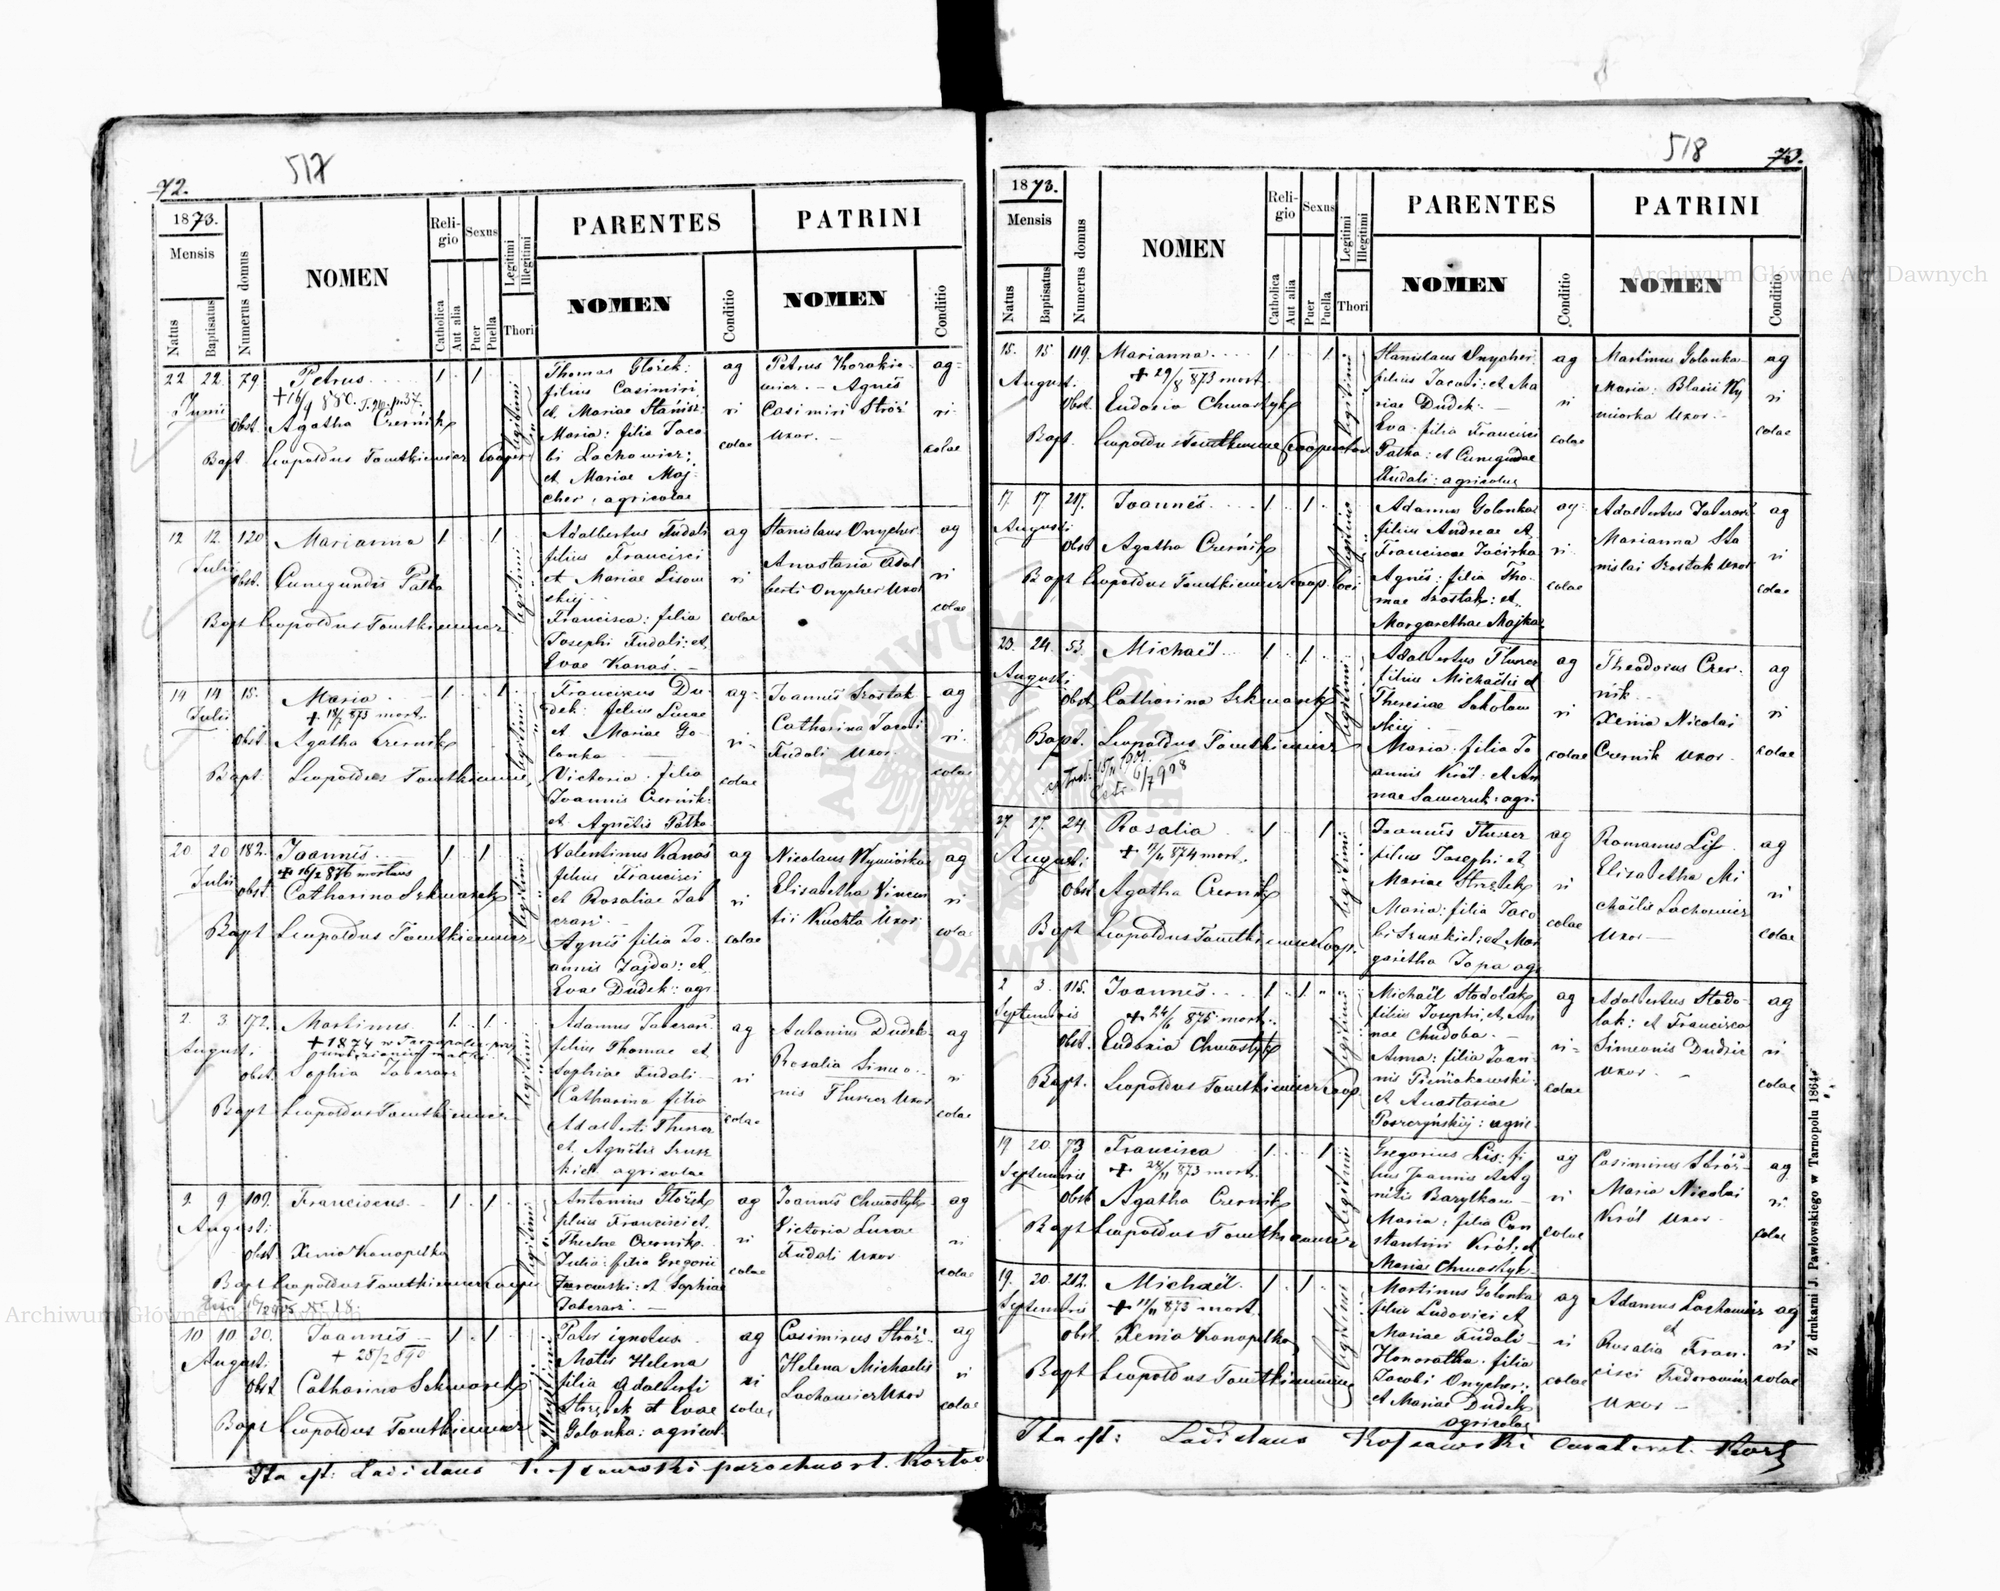 517
72.
1873.
Mensis
Natus
Baptisatus
Numerus domus
NOMEN
Religio
Catholica
Aut alia
Sexus
Puer
Puella
Legitimi
Illegitimi
Thori
PARENTES
NOMEN
Conditio
PATRINI
NOMEN
Conditio
22 22 79 Petrus 1 1
Junii
obst. Agatha Czernik
Bapt. Leopoldus Tomtkiewicz Cooper
legitimi
Thomas Głożek:
filius Casimiri
et Mariae
Maria: filia Jaco-
bi Lachowicz;
et Mariae Maj-
cher, agricolae
ag
ri
colae
Petrus
Agnes
Casimiri Stróż
Uxor.
ag
ri
colae
12 12 120 Marianna 1 1
Julii
obst. Cunegundis Patka
Bapt Leopoldus Tomtkiewicz
legitimi
Adalbertus Fudali
filius Francisci
et Mariae Lisow
skij
Francisca: filia
Josephi Fudali: et
Evae Kanas.
ag
ri
colae
Stanislaus Onycher
Anastasia Adal
berti Onycher Uxor
ag
ri
colae
14 14 15. Maria 1 1
Julii + 18/7 873 mort.
obst. Agatha Czernik
Bapt. Leopoldus Tomtkiewicz
legitimi
Franciscus Du
dek: filius Lucae
et Mariae Go-
lonka
Victoria filia
Joannis Czernik:
et Agnetis Patka
ag
ri
colae
Joannes Szostak
Catharina Jacobi
Fudali Uxor
ag
ri
colae
20 20 182. Joannes 1 1
Julii + 16/2 876 mortuus
obst. Catharina Szkwarek
Bapt Leopoldus Tomtkiewicz
legitimi
Valentinus Kanas
filius Francisci
et Rosaliae Tab
erari
Agnes filia Jo-
annis Zajda: et
Evae Dudek: agr.
ag
ri
colae
Nicolaus Wywiórka
Elisabetha Vincen
tii Kuchta Uxor
ag
ri
colae
2. 3 172. Martinus 1 1
Augusti
+ 1874 w Tarnopolu
obst. Sophia
Bapt Leopoldus Tomtkiewicz
legitimi
Adamus
filius Thomae et
Sophiae Fudali
Catharina filia
Adalberti Tluszcz
et Agnetis Szusz
kiel agricolae
ag
ri
colae
Antonius Dudek
Rosalia Simeo-
nis Tluszcz Uxor
ag
ri
colae
9 9 109. Franciscus 1 1
Augusti
obst Xenia Konopelka
Bapt Leopoldus Tomtkiewicz Cooper
legitimi
Antonius
filius Francisci et
Theclae Czernik.
Julia: filia Gregorii
et Sophiae
ag
ri
colae
Joannes Chwostyk
Victoria Lucae
Fudali Uxor
ag
ri
colae
10 10 20. Joannes 1 1
Augusti + 28/2 890
obst Catharina Szkwarek
Bapt Leopoldus Tomtkiewicz
Illegitimi
Pater ignotus
Mater Helena
filia Adalberti
et Evae
Golonka: agricol.
ag
ri
colae
Casimirus Stróż
Helena Michaelis
Lachowicz Uxor
ag
ri
colae
Ita est: Ladislaus
518
73.
1873.
Mensis
Natus
Baptisatus
Numerus domus
NOMEN
Religio
Catholica
Aut alia
Sexus
Puer
Puella
Legitimi
Illegitimi
Thori
PARENTES
NOMEN
Conditio
PATRINI
NOMEN
Conditio
15. 15 119. Marianna 1 1
August. + 29/8 873 mort.
obst. Eudoxia Chwostyk
Bapt. Leopoldus Tomtkiewicz Cooperator
legitimi
Stanislaus Onycher
filius Jacobi: et Ma
riae Dudek:
Eva filia Francisci
Patka: et Cunegundae
Fudali: agricolae
ag
ri
colae
Martinus Golonka
Maria: Blasii Wy
wiorka Uxor.
ag
ri
colae
17. 17 217. Joannes 1 1
Augusti
obst Agatha Czernik
Bapt Leopoldus Tomtkiewicz Coop. loci
legitimi
Adamus Golonka
filius Andreae et
Franciscae
Agnes: filia Tho-
mae Szostak: et
Margarethae Majka
ag
ri
colae
Adalbertus
Marianna Sta
nislai Szostak Uxor
ag
ri
colae
23. 24. 53. Michaël 1 1
Augusti
obst. Catharina Szkwarek
Bapt. Leopoldus Tomtkiewicz
legitimi
Adalbertus Tluszcz
filius Michaelis et
Theresiae Sokolow
skij
Maria filia Jo
annis Król et An
nae Sawczuk: agri
ag
ri
colae
Theodorus Czer-
nik
Xenia Nicolai
Czernik Uxor
ag
ri
colae
27. 27. 24. Rosalia 1 1
Augusti 874 mort.
obst Agatha Czernik
Bapt Leopoldus Tomtkiewicz Coop.
legitimi
Joannes Tluszcz
filius Josephi et
Mariae
Maria: filia Jaco
bi Szuszkiel: et Mar
garetha Zopa agr
ag
ri
colae
Romanus Lis
Elisabetha Mi
chaelis Lachowicz
Uxor
ag
ri
colae
2 3. 115. Joannes 1 1
Septembris + 24/6 875 mort.
obst. Eudoxia Chwostyk
Bapt. Leopoldus Tomtkiewicz Coop.
legitimi
Michaël Stodolak
filius Josephi, et An
nae Chudoba.
Anna: filia Joan-
nis
et Anastasiae
agric.
ag
ri
colae
Adalbertus Stodo-
lak: et Francisca
Simeonis
Uxor
ag
ri
colae
19 20. 73 Francisca 1 1
Septembris + 28/11 873 mort.
obst Agatha Czernik
Bapt Leopoldus Tomtkiewicz
legitimi
Gregorius Lis: fi
lius Joannis et Ag
netis
Maria: filia Con
stantini Król: et
Maria Chwostyk
ag
ri
colae
Casimirus Stróż
Maria Nicolai
Król Uxor
ag
ri
colae
19. 20. 212. Michaël 1 1
Septembris + 11/11 873 mort
obst. Xenia Konopelka
Bapt Leopoldus Tomtkiewicz
legitimi
Martinus Golonka
filius Ludovici et
Mariae Fudali
Honoratha filia
Jacobi Onycher:
et Mariae Dudek
agricolae
ag
ri
colae
Adamus Lachowicz
et
Rosalia Fran-
cisci
Uxor
ag
ri
colae
Ita est: Ladislaus
Z drukarni J. Pawłowskiego w Tarnopolu 1864.
Archiwum Główne Akt Dawnych
Archiwum Główne Akt Dawnych